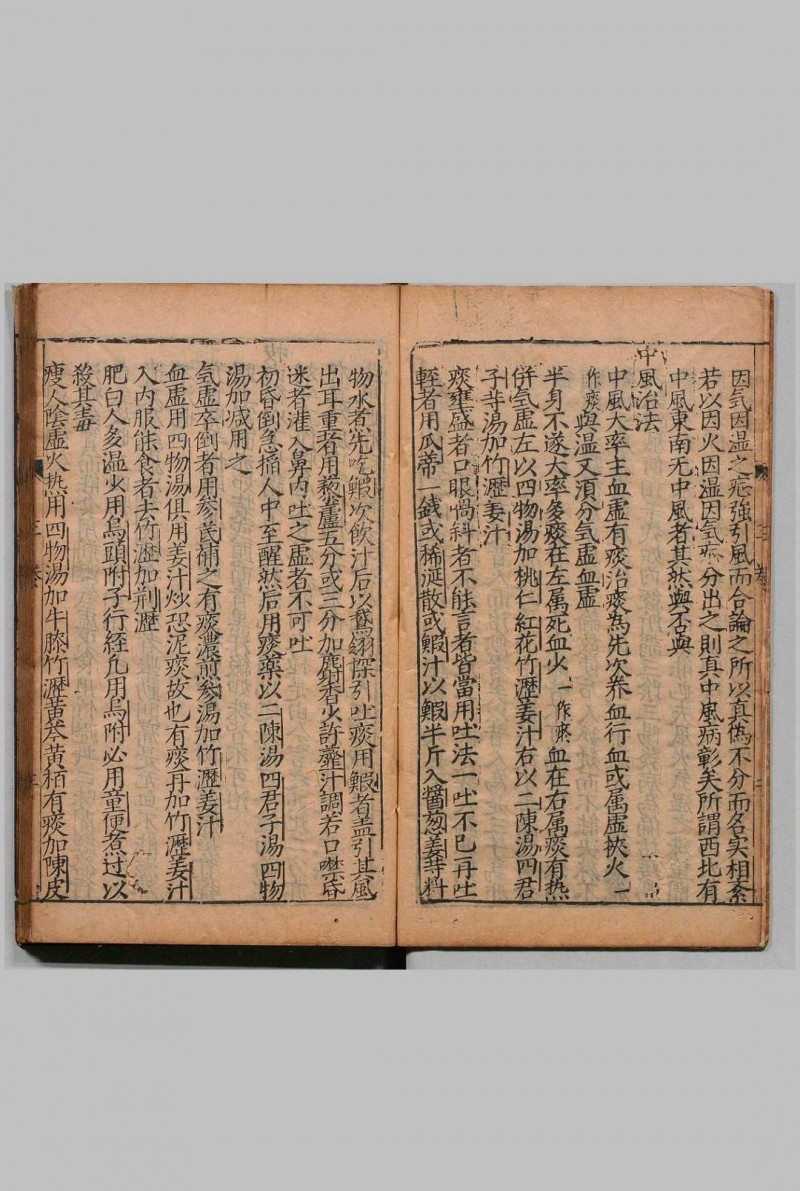 因気因湿之𤵚強引風而合論之所以真偽不分而名实相紊
若以因火因湿因気𤵚分出之則真中風病彰矣所謂西北有
中風東南无中風者其然與否與
中風治法
中風大率主血虚有痰治痰為先次养血行血或属虚挾火一
作痰與湿又湏分気虚血虚
半身不遂大率多痰在左属死血火一作瘀血在右属痰有热
併気虚左以四物湯加桃仁紅花竹瀝姜汁右以二陳湯四君
子等湯加竹瀝姜汁
痰壅盛者口眼喎斜者不能言者皆當用吐法一吐不已再吐
軽者用瓜蒂一錢或稀涎散或鰕汁以鰕半斤入醤葱姜等料
物水煮先吃鰕次飲汁后以鵞翎探引吐痰用鰕者盖引其風
出耳重者用藜蘆五分或三分加麝香少許虀汁調若口噤昏
迷者灌入鼻内吐之虚者不可吐
初昏倒急搯人中至醒然后用痰藥以二陳湯四君子湯四物
湯加减用之
気虚卒倒者用参芪補之有痰濃煎参湯加竹瀝姜汁
血虚用四物湯俱用姜汁炒恐泥痰故也有痰再加竹瀝姜汁
入内服能食者去竹瀝加荆瀝
肥白人多湿少用烏頭附子行経凢用烏附必用童便煮过以
殺其毒
瘦人陰虚火热用四物湯加牛膝竹瀝黄芩黄栢有痰加陳皮